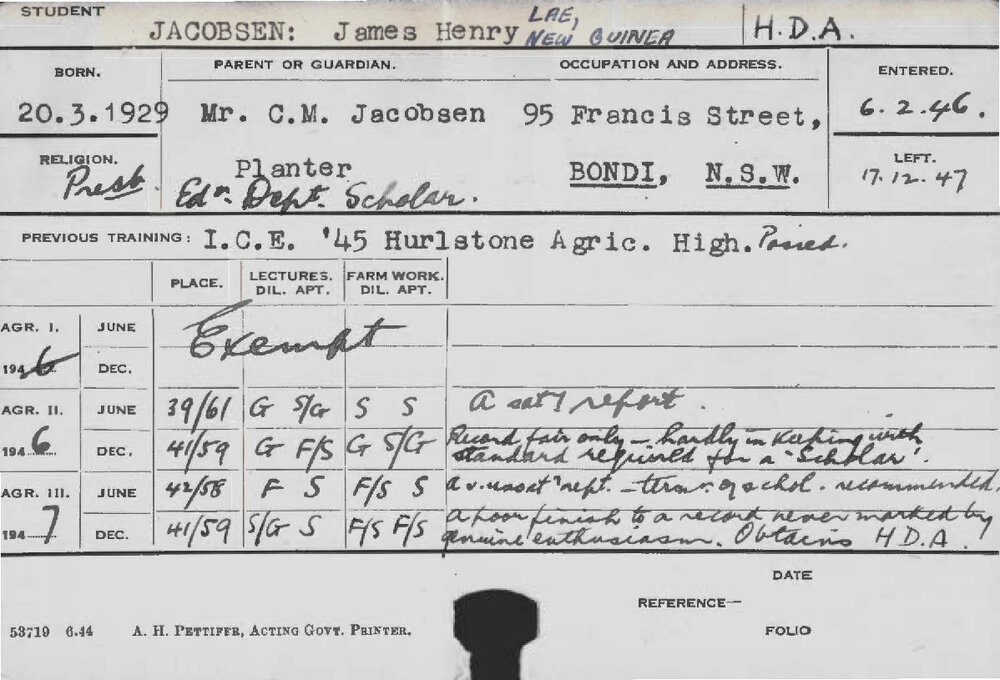 STUDENT
JACOBSEN: James Henry LAE, NEW GUINEA H.D.A.
BORN. PARENT OR GUARDIAN. OCCUPATION AND ADDRESS. ENTERED.
20.3.1929 Mr. C.M. Jacobsen 95 Francis Street, 6.2.46.
RELIGION. Planter BONDI, N.S.W. LEFT.
Presb. Edn. Dept. Scholar. 17.12.47
PREVIOUS TRAINING: I.C.E. '45 Hurlstone Agric. High. Passed.
PLACE. LECTURES. FARM WORK.
DIL. APT. DIL. APT.
AGR. I. JUNE Exempt
1946 DEC.
AGR. II. JUNE 39/61 G S/G S S A sat'y report.
1946. DEC. 41/59 G F/S G S/G Record fair only – hardly in keeping with
standard required for a "Scholar".
AGR. III. JUNE 42/58 F S F/S S A v. unsat' rept. – termn. of schol. recommended.
1947 DEC. 41/59 S/G S F/S F/S A poor finish to a record never marked by
genuine enthusiasm. Obtains H.D.A.
DATE
REFERENCE—
53719 6.44 A. H. PETTIFER, ACTING GOVT. PRINTER. FOLIO